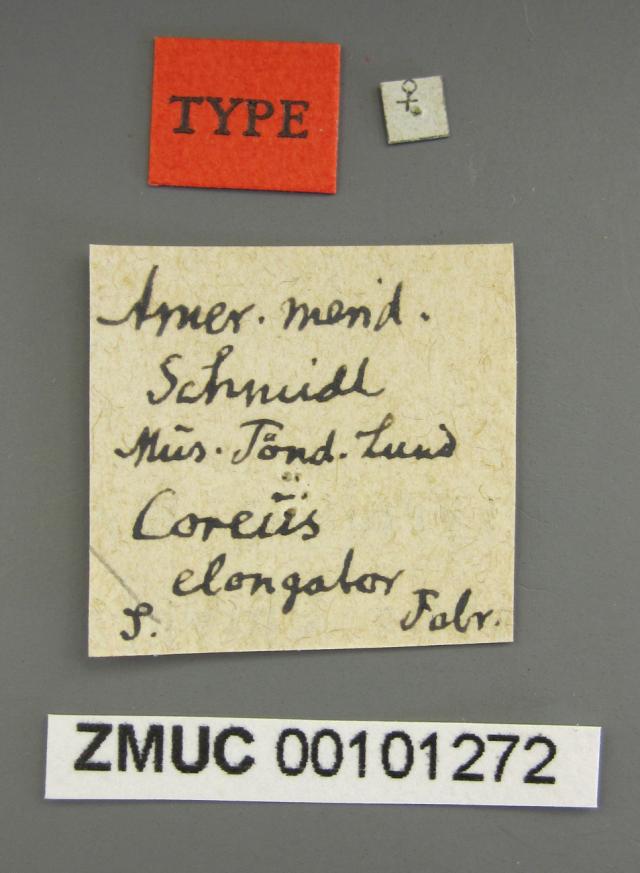 TYPE
♀
Amer. merid.
Schmidt
Mus. Tönd. Lund
Coreus
elongator
S. Fabr.
ZMUC 00101272